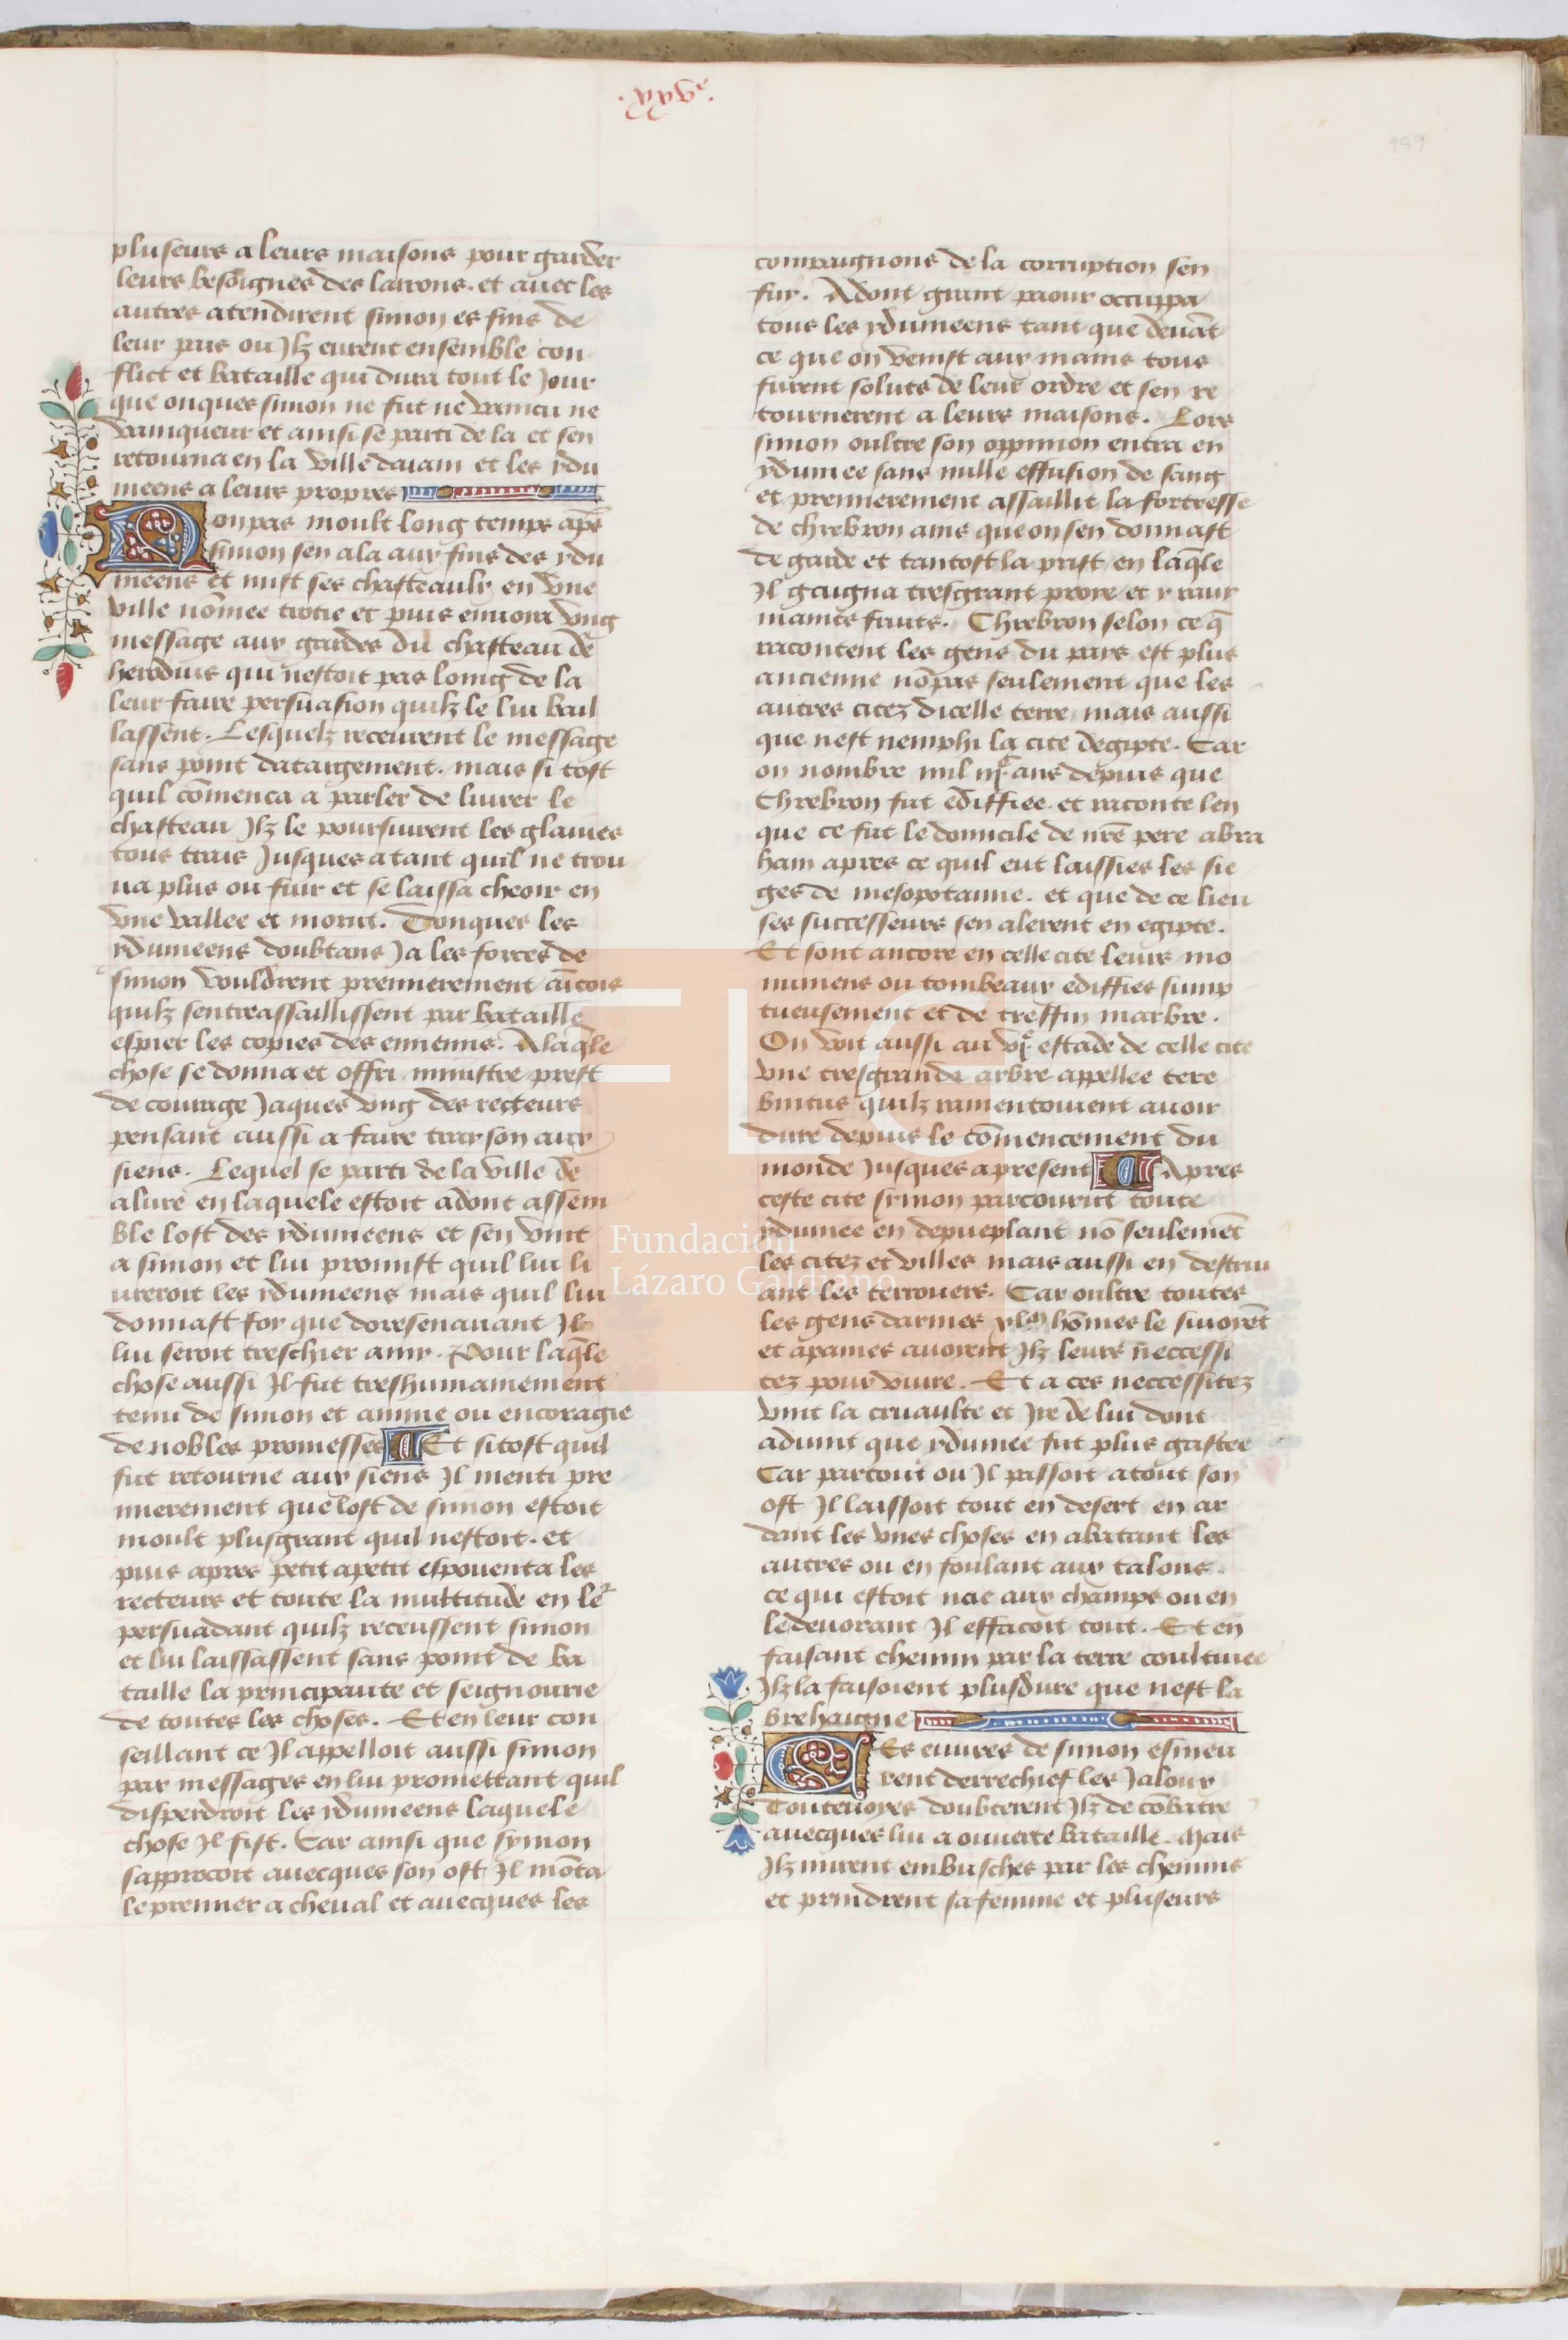 pluseurs a leurs maisons pour garder
leurs besoignes des larrons. et auec les
autres atendirent simon es fins de
leur pais ou Jlz eurent ensemble con
flict et bataille qui dura tout le Jour
que onques simon ne fut ne vaincu ne
vainqueur et ainsi se parti de la et sen
retourna en la ville daiam et les ydu
meens a leurs propres
Non pas moult long temps apẽs
simon sen ala aux fins des ydu
meens et mist ses chasteaulx en vne
ville nõmee trotie et puis enuoia vng
message aux gardes du chasteau de
herodius qui nestoit pas loing de la
leur faire persuasion quilz le lui bail
lassent. Lesquelz receurent le message
sans point datargement. mais si tost
quil cõmenca a parler de liurer le
chasteau Jlz le poursuirent les glaiues
tous trais Jusques a tant quil ne trou
ua plus ou fuir et se laissa cheoir en
vne vallee et morut. Donques les
ydumeens doubtans Ja les forces de
simon vouldrent premierement aĩcois
quilz sentreassaillissent par bataille
espier les copies des ennemis. A laq̃le
chose se donna et offri ministre prest
de courage Jaques vng des recteurs
pensant aussi a faire trayson aux
siens. Lequel se parti de la ville de
alure en laquele estoit adont assem
ble lost des ydumeens et sen vint
a simon et lui promist quil lui li
ureroit les ydumeens mais quil lui
donnast foy que doresenauant Jl
lui seroit treschier amy. Pour laq̃le
chose aussi Jl fut treshumainement
tenu de simon et anime ou encoragie
de nobles promesses Et sitost quil
fut retourne aux siens Jl menti pre
mierement que lost de simon estoit
moult plusgrant quil nestoit. et
puis apres petit apetit espouenta les
recteurs et toute la multitude en le᷑
persuadant quilz receussent simon
et lui laissassent sans point de ba
taille la principaute et seignourie
de toutes les choses. Et en leur con
seillant ce Jl appelloit aussi simon
par messages en lui promettant quil
disperdroit les ydumeens laquele
chose Jl fist. Car ainsi que symon
sapprocoit auecques son ost Jl mõta
le premier a cheual et auecques les
compaignons de la corruption sen
fuy. Adont grant paour occuppa
tous les ydumeens tant que deuãt
ce que on venist aux mains tous
furent soluts de leur ordre et sen re
tournerent a leurs maisons. Lors
simon oultre son oppinion entra en
ydumee sans nulle effusion de sang
et premierement assaillit la fortresse
de chrebron ains que on sen donnast
de garde et tantost la prist en laq̃le
Jl gaigna tresgrant proye et y rauy
maintes fruits. Chrebron selon ce q̃
racontent les gens du pays est plus
ancienne nõpas seulement que les
autres citez dicelle terre mais aussi
que nest nemphi la cite degipte. Car
on nombre mil iijᶜ ans depuis que
Chrebron fut ediffiee. et raconte len
que ce fut le domicile de nr̃e pere abra
ham apres ce quil eut laissies les sie
ges de mesopotamie. et que de ce lieu
ses successeurs sen alerent en egipte.
Et sont ancore en celle cite leurs mo
numens ou tombeaux ediffies sump
tueusement et de treffin marbre.
On voit aussi au vjᵉ estade de celle cite
vne tresgrande arbre appellee tere
bintus quilz ramentoiuent auoir
dure depuis le cõmencement du
monde Jusques apresent Apres
ceste cite symon parcourut toute
ydumee en depueplant nõ seulemẽt
les citez et villes mais aussi en destrui
ant les terrouers. Car oultre toutes
les gens darmes xlᵐ hõmes le siuoiẽt
et apaines auoient Jlz leurs neccessi
tez pour viure. Et a ces neccessitez
vint la cruaulte et Jre de lui dont
aduint que ydumee fut plus gastee
Car partout ou Jl passoit atout son
ost Jl laissoit tout en desert en ar
dant les vnes choses en abatant les
autres ou en foulant aux talons.
ce qui estoit nae aux champs ou en
le deuorant Jl effacoit tout. Et en
faisant chemin par la terre coultiuee
Jlz la faisoient plusdure que nest la
brehaigne
Ces euures de simon esmeu
rent derrechief les Jaloux
Touteuoyes doubterent Jlz de cõbatre
auecques lui a ouuerte bataille. Mais
Jlz mirent embusches par les chemins
et prindrent sa femme et pluseurs
Fundación
Lázaro Galdiano
FLG